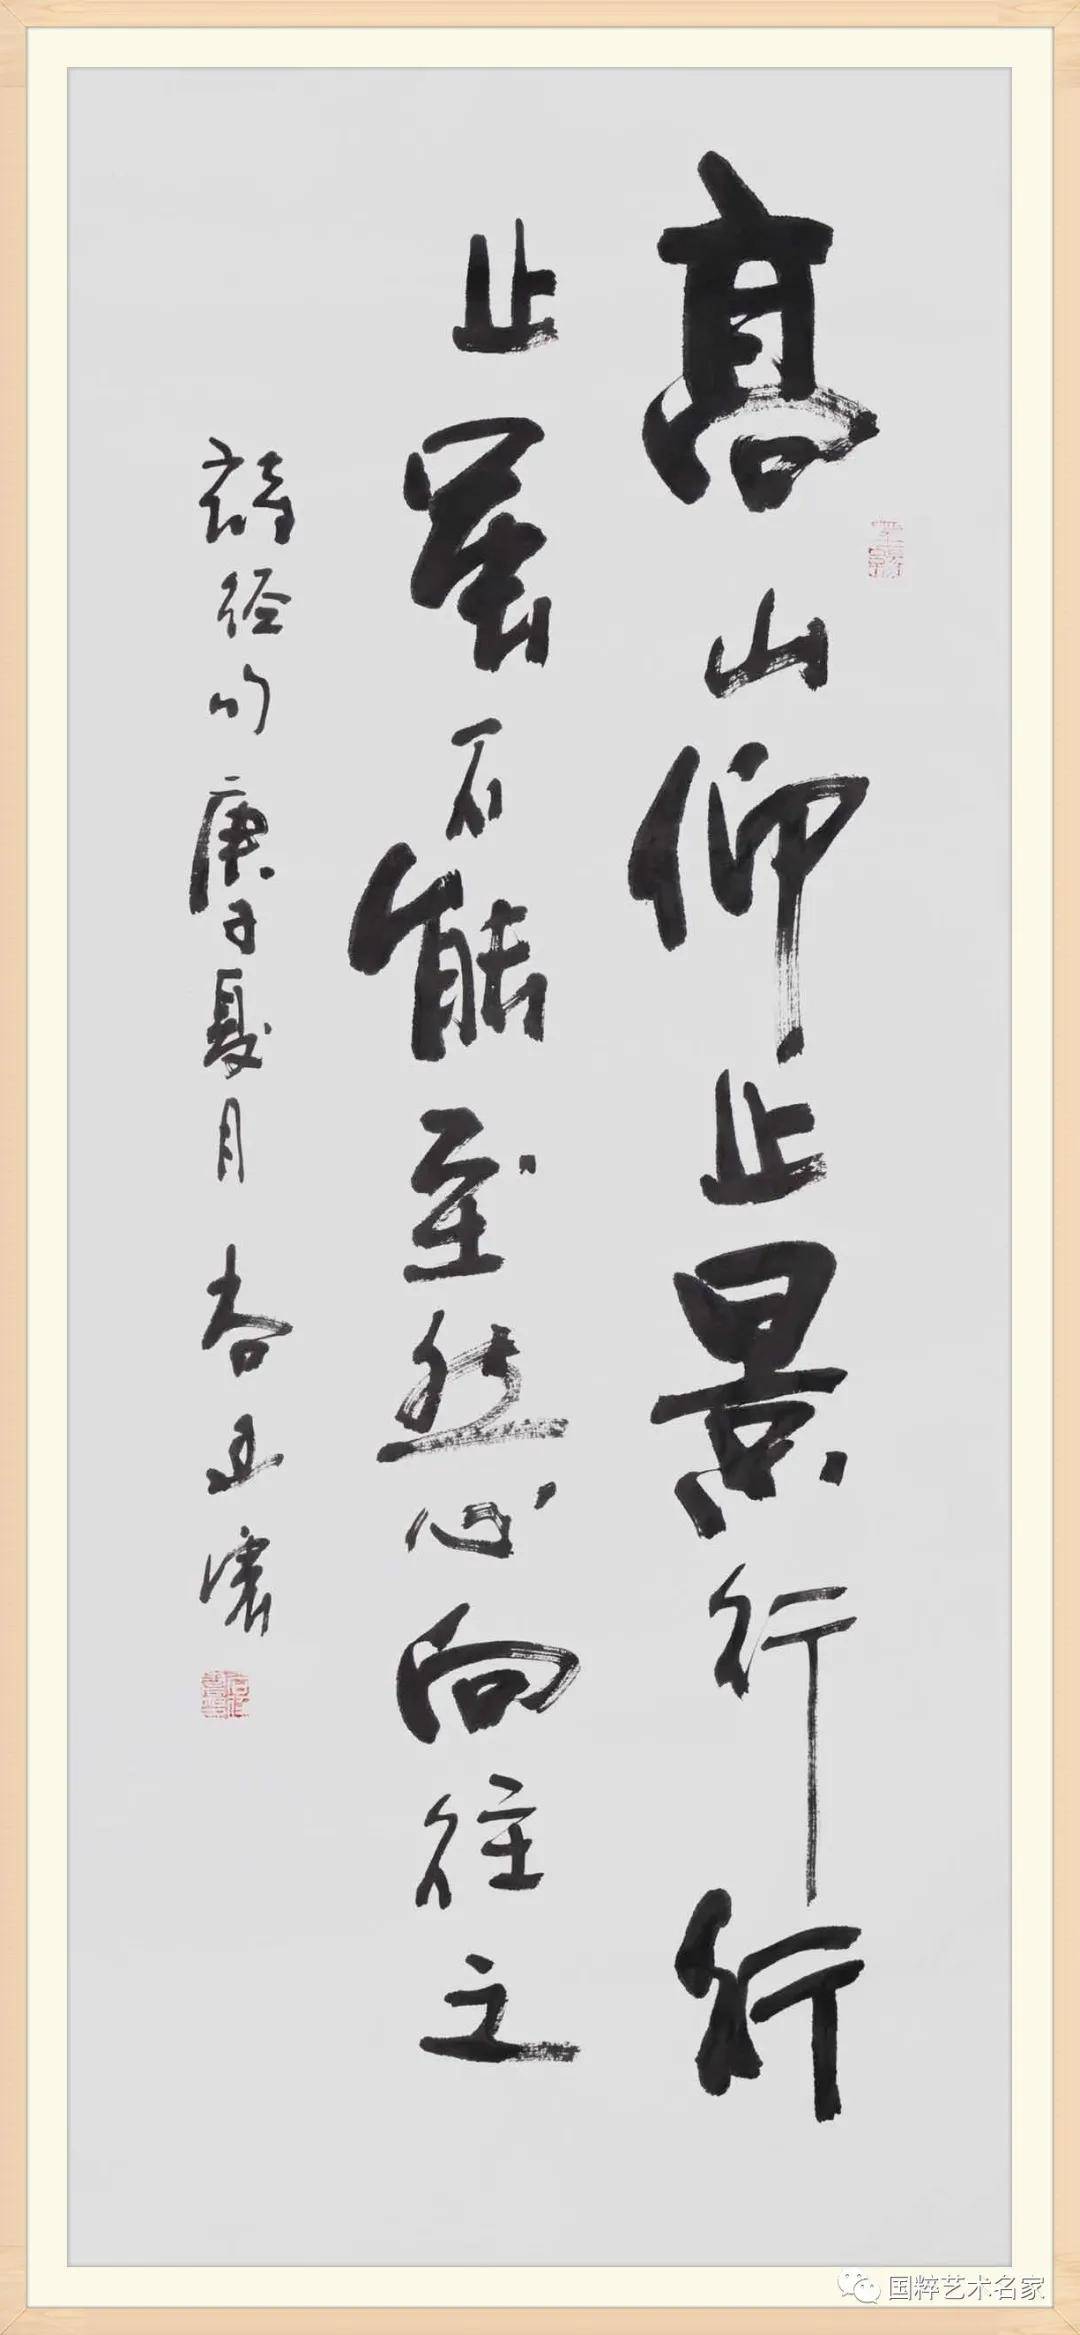 髙山仰止景行行
止虽不能至然心向往之
詩經句庚子夏月
国粹艺术名家